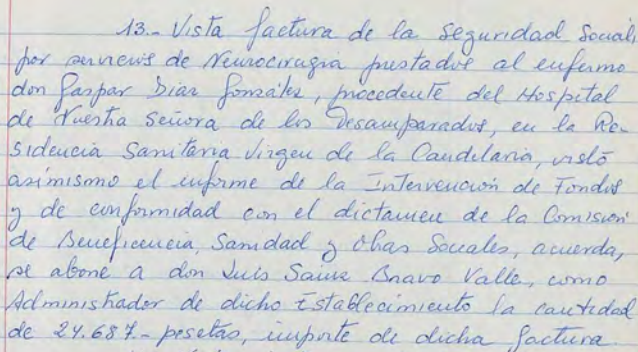 13.- Vista factura de la Seguridad Social,
por servicios de Neurocirugia prestados al enfermo
don Gaspar Diaz González, procedente del Hospital
de Nuestra Señora de los Desamparados, en la Re-
sidencia Sanitaria Virgen de la Candelaria, visto
asimismo el informe de la Intervención de Fondos
y de conformidad con el dictamen de la Comisión
de Beneficencia, Sanidad y Obras Sociales, acuerda,
se abone a don Luis Bravo Valle, como
Administrador de dicho Establecimiento la cantidad
de pesetas, importe de dicha factura